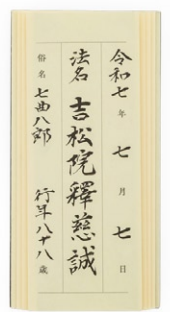 令和七年 七月 七日
法名 吉松院釋慈誠
俗名 七曲八郎 行年八十八歳